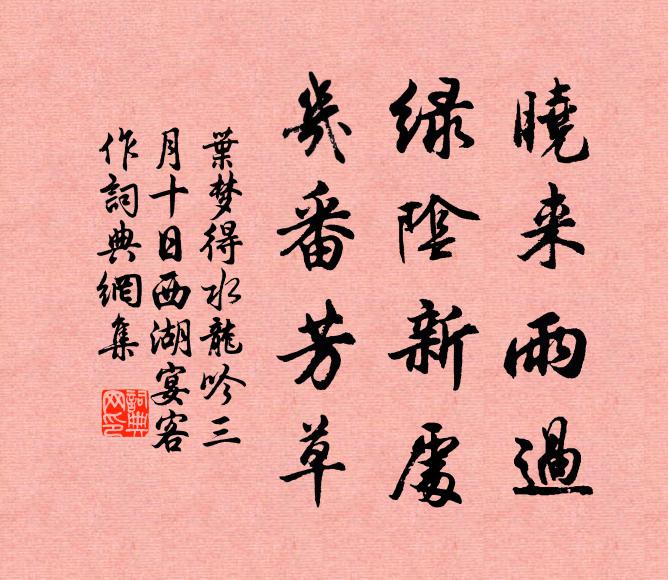 曉来雨過
绿陰新處
幾番芳草
葉梦得水龍吟三
月十日西湖宴客
作詞典網集
詞典
网印